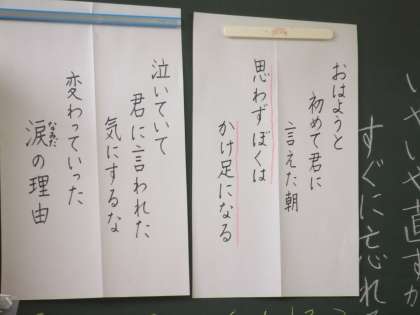 いやいや直すか
すぐに忘れる
おはようと
初めて君に
言えた朝
思わずぼくは
かけ足になる
泣いていて
君に言われた
気にするな
変わっていった
涙の理由
なみだ